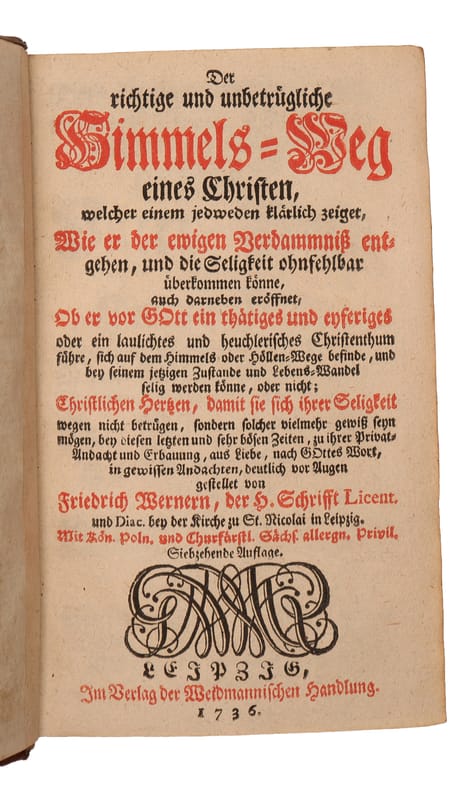 Der
richtige und unbetrügliche
Himmels-Weg
eines Christen,
welcher einem jedweden klärlich zeiget,
Wie er der ewigen Verdammniß ent-
gehen, und die Seligkeit ohnfehlbar
überkommen könne,
auch darneben eröffnet,
Ob er vor GOtt ein thätiges und eyferiges
oder ein laulichtes und heuchlerisches Christenthum
führe, sich auf dem Himmels oder Höllen-Wege befinde, und
bey seinem jetzigen Zustande und Lebens-Wandel
selig werden könne, oder nicht;
Christlichen Hertzen, damit sie sich ihrer Seligkeit
wegen nicht betrügen, sondern solcher vielmehr gewiß seyn
mögen, bey diesen letzten und sehr bösen Zeiten, zu ihrer Privat-
Andacht und Erbauung, aus Liebe, nach GOttes Wort,
in gewissen Andachten, deutlich vor Augen
gestellet von
Friedrich Wernern, der H. Schrifft Licent.
und Diac. bey der Kirche zu St. Nicolai in Leipzig.
Mit Kön. Poln. und Churfürstl. Sächs. allergn. Privil.
Siebzehende Auflage.
LEIPZIG,
Im Verlag der Weidmannischen Handlung.
1736.